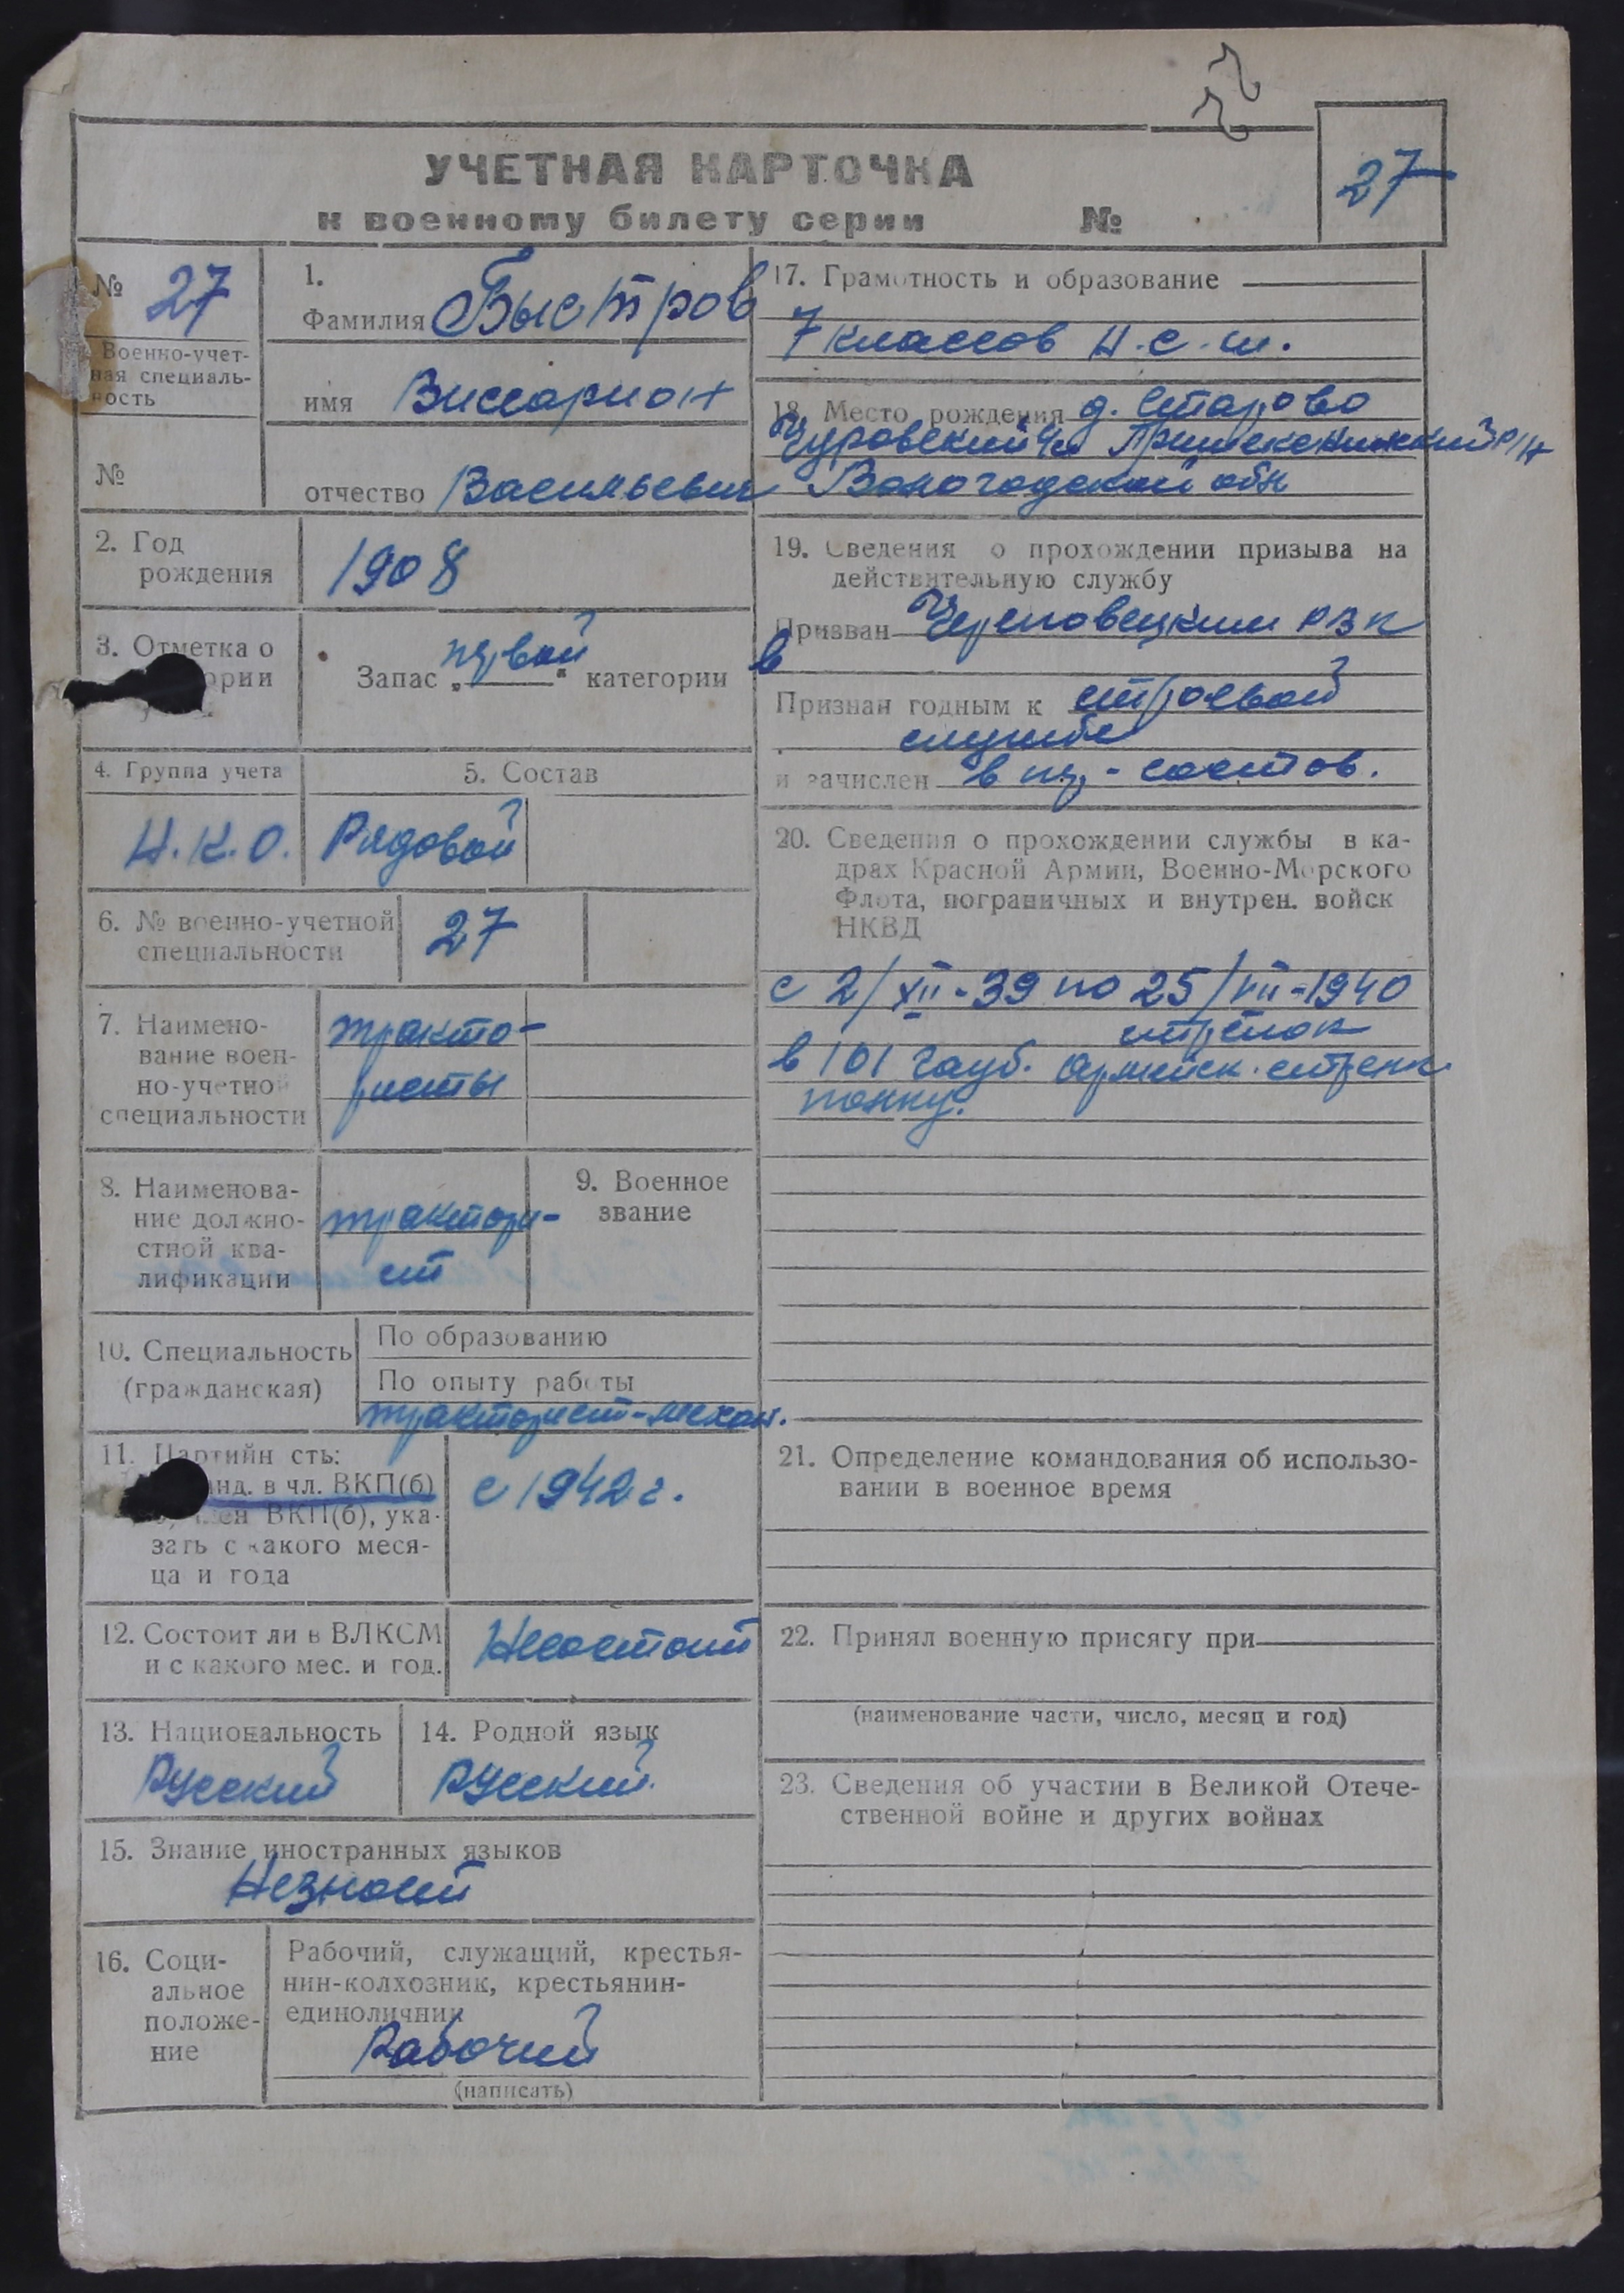 УЧЕТНАЯ КАРТОЧКА
к военному билету серии №
27
№ 27
Военно-учет-
ная специаль-
ность
№
1.
Фамилия Быстров
имя Виссарион
отчество Васильевич
2. Год
рождения
1908
3. Отметка о
ории
Запас „первой“ категории
4. Группа учета
Н.К.О.
5. Состав
Рядовой
6. № военно-учетной
специальности
27
7. Наимено-
вание воен-
но-учетной
специальности
тракто-
ристы
8. Наименова-
ние должно-
стной ква-
лификации
трактори-
ст
9. Военное
звание
10. Специальность
(гражданская)
По образованию
По опыту работы
тракторист-механ.
11. Партийн сть:
нд. в чл. ВКП(б)
член ВКП(б), ука-
зать с какого меся-
ца и года
с 1942 г.
12. Состоит ли в ВЛКСМ
и с какого мес. и год.
Несостоит
13. Национальность
Русский
14. Родной язык
Русский
15. Знание иностранных языков
Незнает
16. Соци-
альное
положе-
ние
Рабочий, служащий, крестья-
нин-колхозник, крестьянин-
единоличник
Рабочий
(написать)
17. Грамотность и образование
7 классов Н.с.ш.
18. Место рождения д. Старово
Чуровский р/н
Вологодской обл
19. Сведения о прохождении призыва на
действительную службу
Призван Череповецким РВК
в
Признан годным к строевой
службе
и зачислен в ряд-состав.
20. Сведения о прохождении службы в ка-
драх Красной Армии, Военно-Морского
Флота, пограничных и внутрен. войск
НКВД
с 2/XII-39 по 25/VII-1940
стрелок
в 101 гауб. армейск. стрелк.
полку.
21. Определение командования об использо-
вании в военное время
22. Принял военную присягу при
(наименование части, число, месяц и год)
23. Сведения об участии в Великой Отече-
ственной войне и других войнах